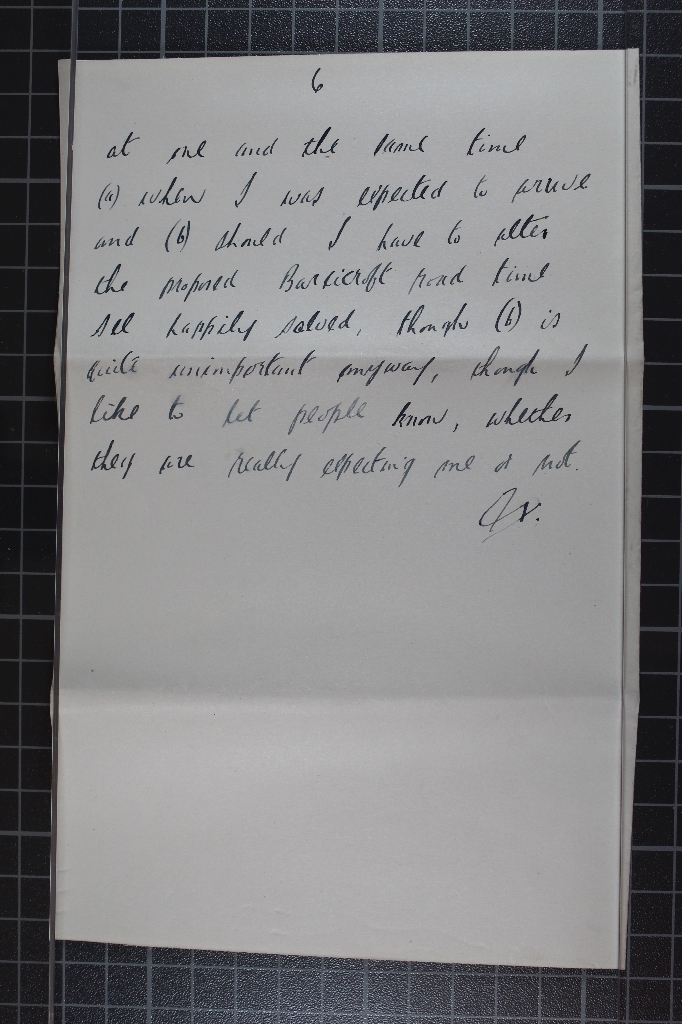 6
at one and the same time
(a) when I was expected to arrive
and (b) should I have to alter
the proposed Barsicroft road time
All happily solved, though (b) is
quite unimportant anyway, though I
like to let people know, whether
they are really expecting me or not.